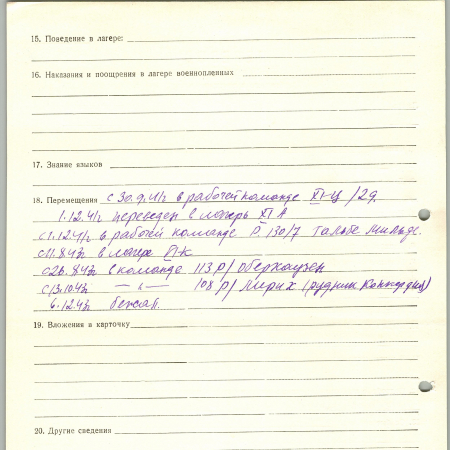 15. Поведение в лагере:
16. Наказания и поощрения в лагере военнопленных
17. Знание языков
18. Перемещения с 30.9.41г в рабочей команде XI-Ц /29.
1.12.41г переведен в лагерь XI А
с 1.12.41г. в рабочей команде О 130/7
с 11.8.42г. в лагере
с 26.8.42г. в команде 113 Р/ Оберхаузен
с 13.10.42г. — " — 108 Р/ (рудник Конкордия)
6.12.42г бежал.
19. Вложения в карточку
20. Другие сведения